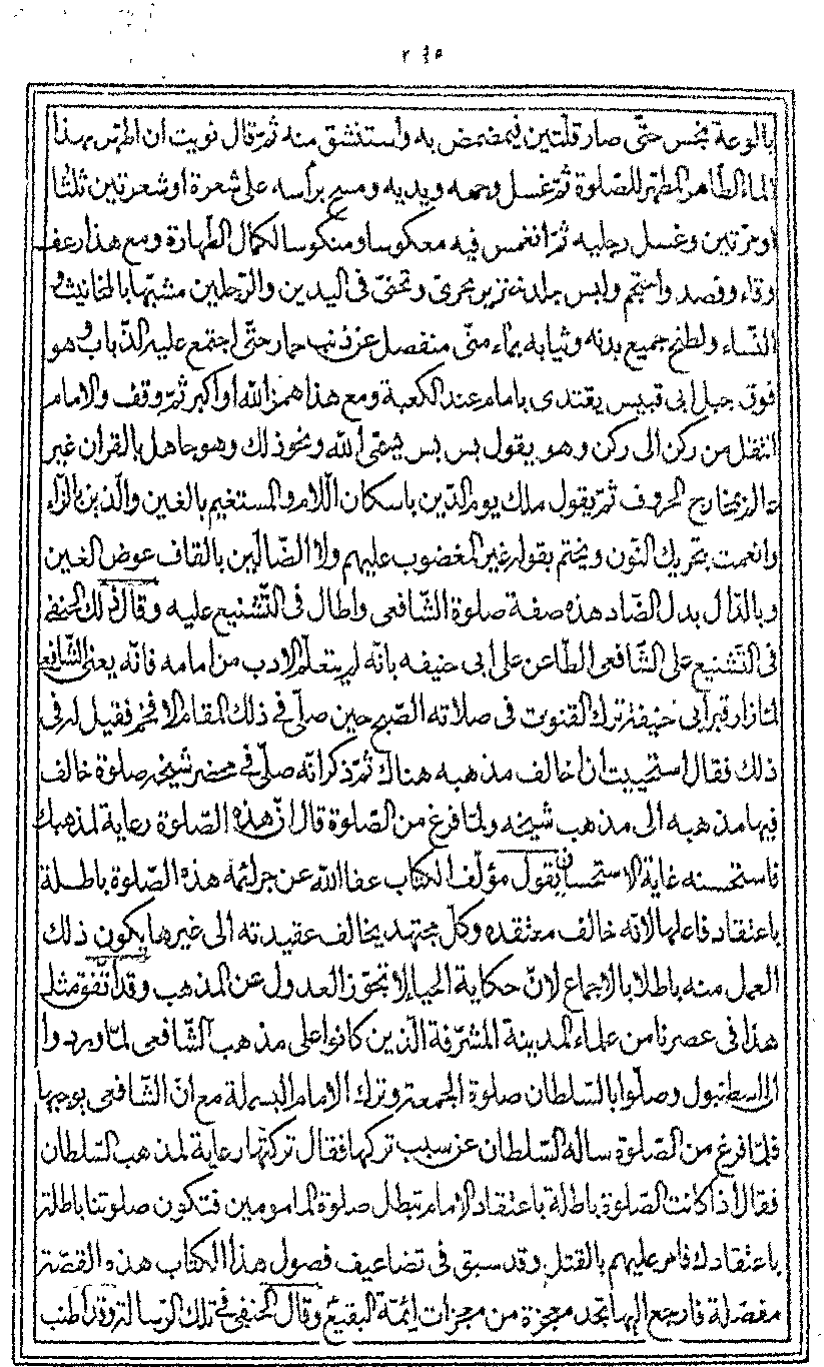 ٢٤٥
بالوعة نجس حتّى صار قلّتين فيمضمض به واستنشق منه ثمّ قال نويت ان اطهّر بهذا
الماء الطّاهر المطهّر للصّلوة ثمّ غسل وجهه ويديه ومسح برأسه على شعرة او شعرتين ثلثا
او مرّتين وغسل رجليه ثمّ انغمس فيه معكوسا ومنكوسا لكمال الطّهارة ومع هذا رعف
وقاء وفصد واحتجم ولبس جلد خنزير بحرىّ وتحنّى فى اليدين والرّجلين مشبّها بالمخانيث و
النّساء ولطخ جميع بدنه وثيابه بماء منىّ منفصل عن ذنب حمار حتّى اجتمع عليه الذّباب وهو
فوق جبل ابى قبيس يقتدى بامام عند الكعبة ومع هذا همز الله اواكبر ثمّ وقف والامام
انتقل من ركن الى ركن وهو يقول بس بس شفى الله ونحو ذلك وهو جاهل بالقران غير
مخارج الحروف ثمّ يقول ملك يوم الدّين باسكان اللّام والمستغيم بالغين والّذين بالزّاء
وانعمت بتحريك النّون ويختم بقوله غير المغضوب عليهم ولا الضّالّين بالقاف عوض الغين
وبالدّال بدل الضّاد هذه صفة صلوة الشّافعى واطال فى التّشنيع عليه وقال ذلك الحنفى
فى التّشنيع على الشّافعى الطّاعن على ابى حنيفه بانّه لم يتعلّم الادب من امامه فانّه يعنى الشّافعى
لمّا زار قبر ابى حنيفة ترك القنوت فى صلاته الصّبح حين صلّى فى ذلك المقام الافخم فقيل له فى
ذلك فقال استحييت ان اخالف مذهبه هناك ثمّ ذكر انّه صلّى فى محضر شيخه صلوة خالف
فيها مذهبه الى مذهب شيخه ولمّا فرغ من الصّلوة قال انّ هذه الصّلوة رعاية لمذهبك
فاستحسنه غاية الاستحسان يقول مؤلّف الكتاب عفا الله عن جرائمه هذه الصّلوة باطلة
باعتقاد فاعلها لانّه خالف معتقده وكلّ مجتهد يخالف عقيدته الى غيرها يكون ذلك
العمل منه باطلا بالاجماع لانّ حكاية الحيا لا تجوّز العدول عن المذهب وقد اتّفق مثل
هذا فى عصرنا من علماء المدينة المشرّفة الّذين كانوا على مذهب الشّافعى لمّا وردوا
الى اسطنبول وصلّوا بالسّلطان صلوة الجمعة وترك الامام البسملة مع انّ الشّافعى يوجبها
فلمّا فرغ من الصّلوة ساله السّلطان عن سبب تركها فقال تركتها رعاية لمذهب السّلطان
فقال اذا كانت الصّلوة باطلة باعتقاد الامام تبطال صلوة المامومين فتكون صلوتنا باطلة
باعتقادك فامر عليهم بالقتل وقد سبق فى تضاعيف فصول هذا الكتاب هذه القصّة
مفصّلة فارجع اليها تجد معجزة من معجزات ائمّة البقيع وقال الحنفى فى تلك الرّسالة وقد اطنب